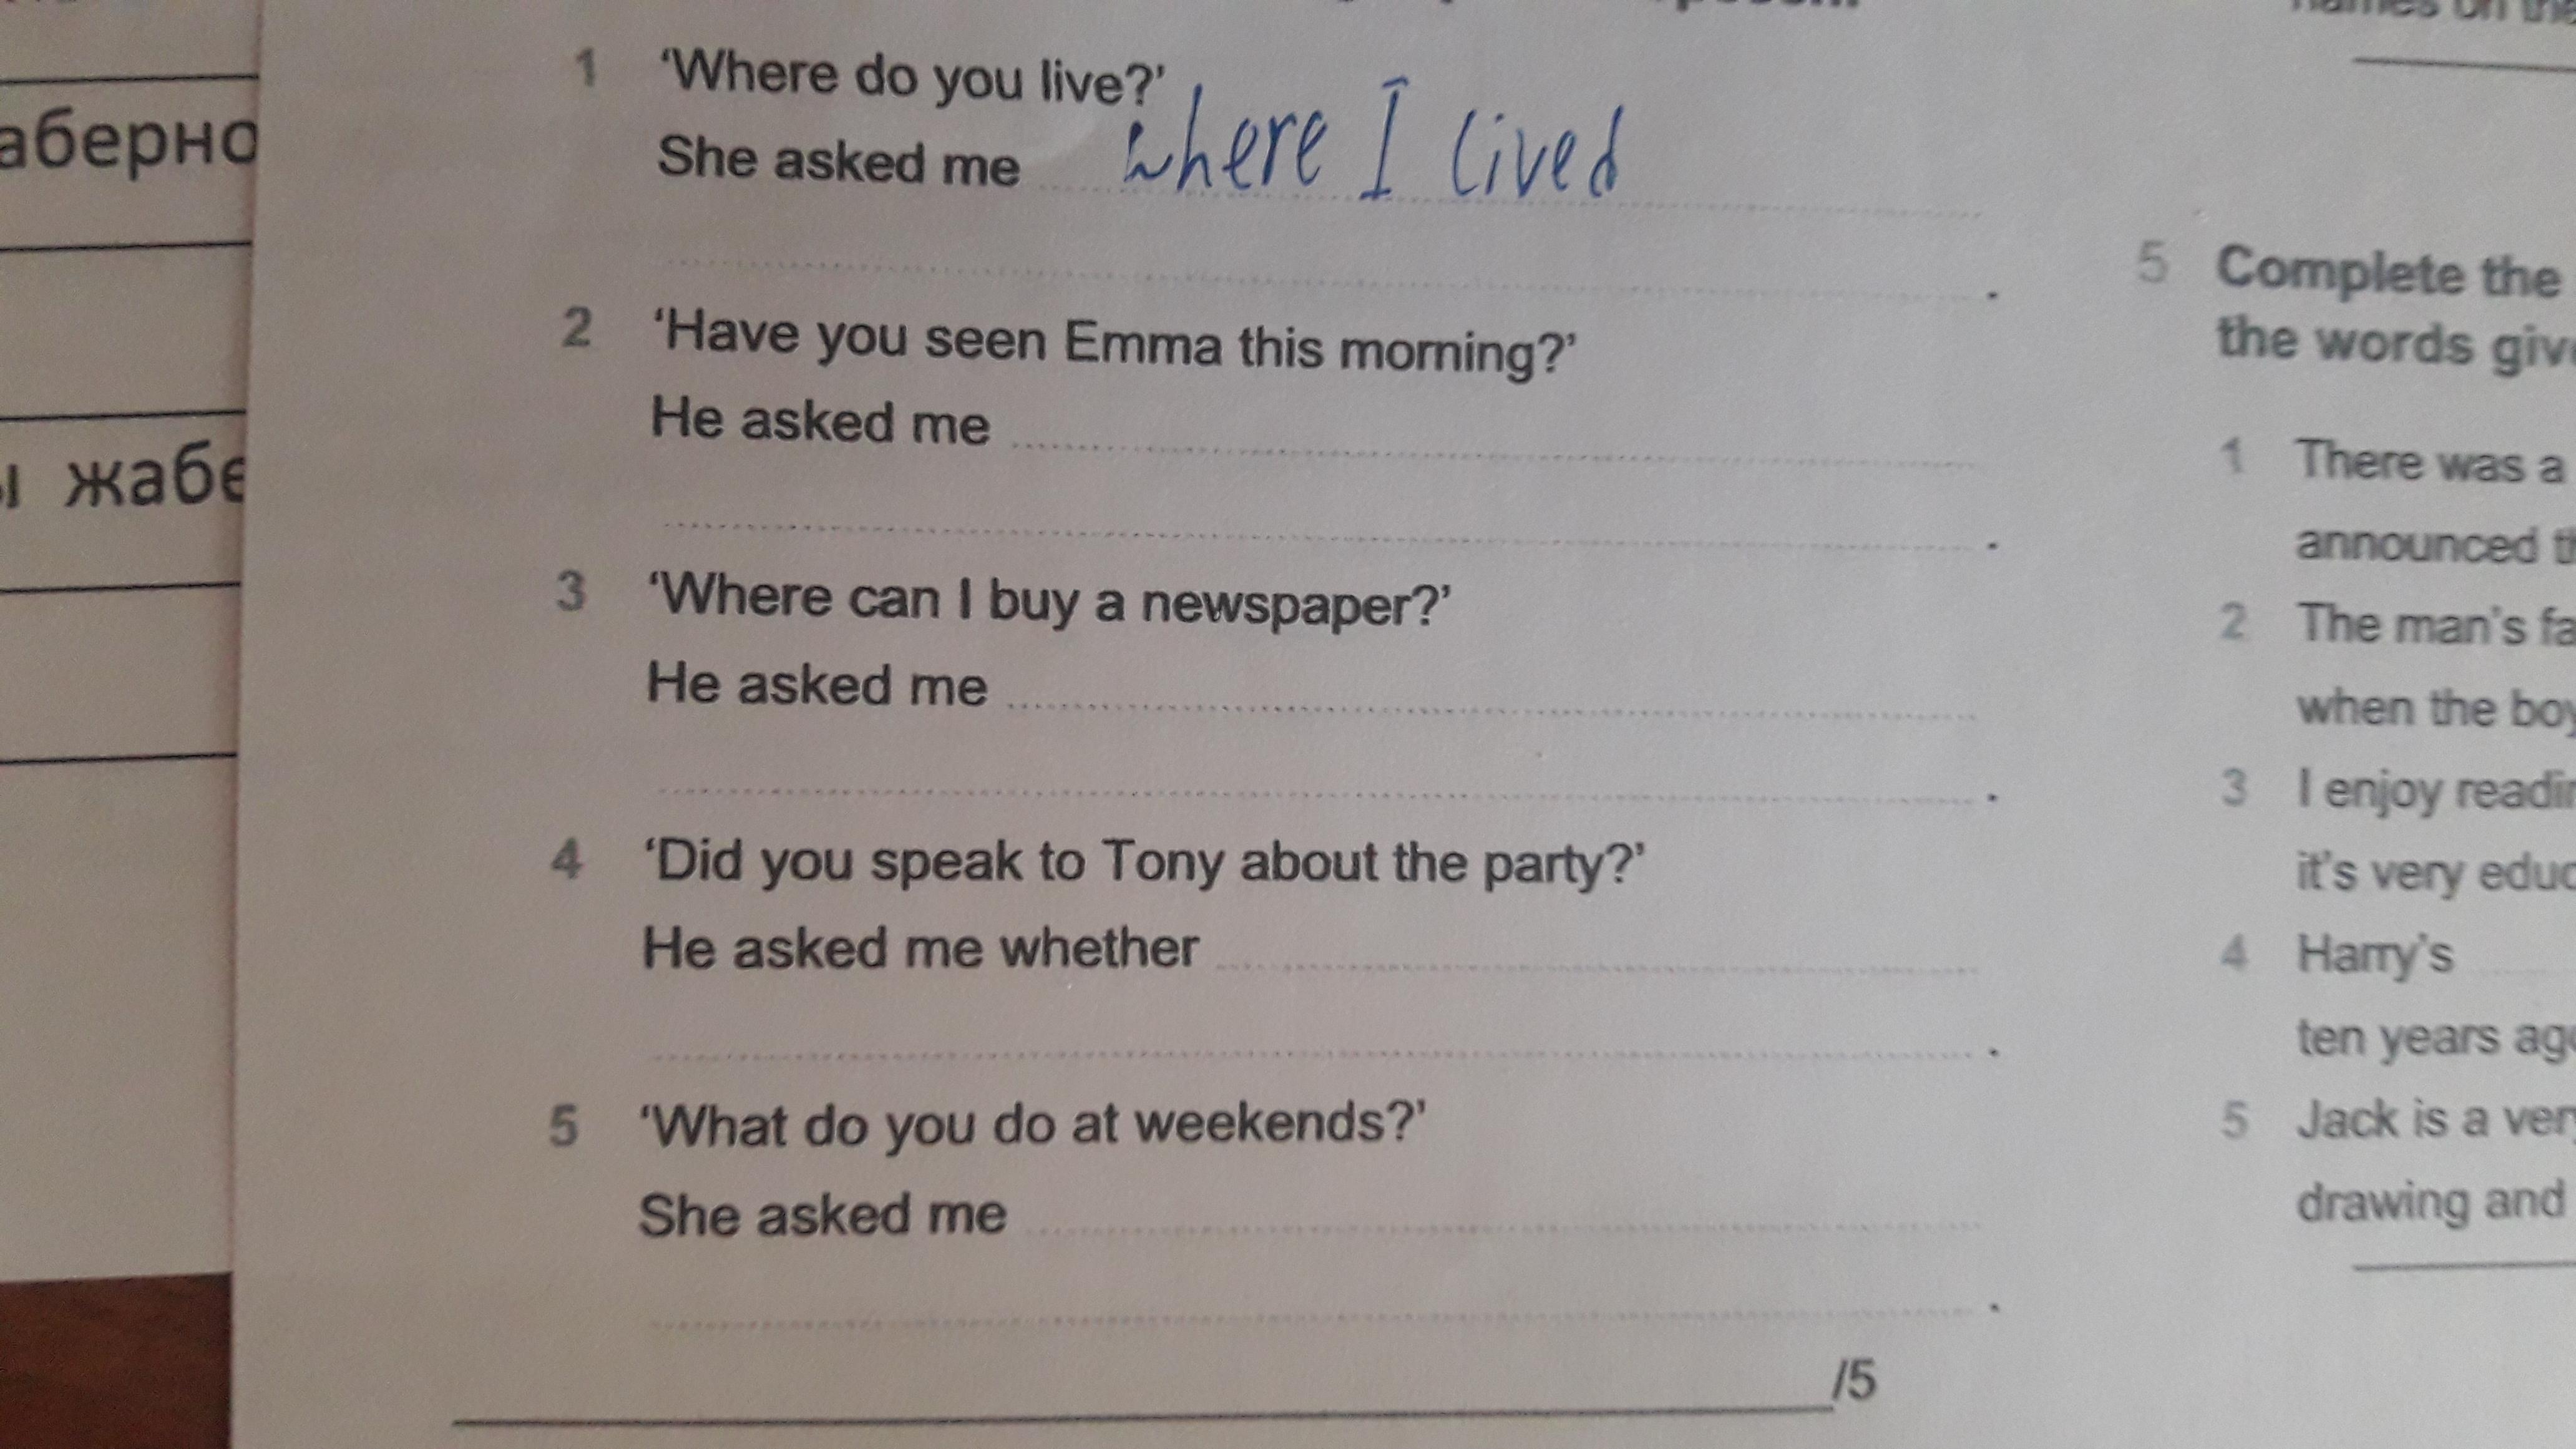 аберно
ы жабе
1 ‘Where do you live?’
She asked me where I lived
.
2 ‘Have you seen Emma this morning?’
He asked me
.
3 ‘Where can I buy a newspaper?’
He asked me
.
4 ‘Did you speak to Tony about the party?’
He asked me whether
.
5 ‘What do you do at weekends?’
She asked me
.
/5
names on the
5 Complete the
the words give
1 There was a
announced th
2 The man’s fa
when the boy
3 I enjoy readin
it’s very educ
4 Harry’s
ten years ago
5 Jack is a very
drawing and